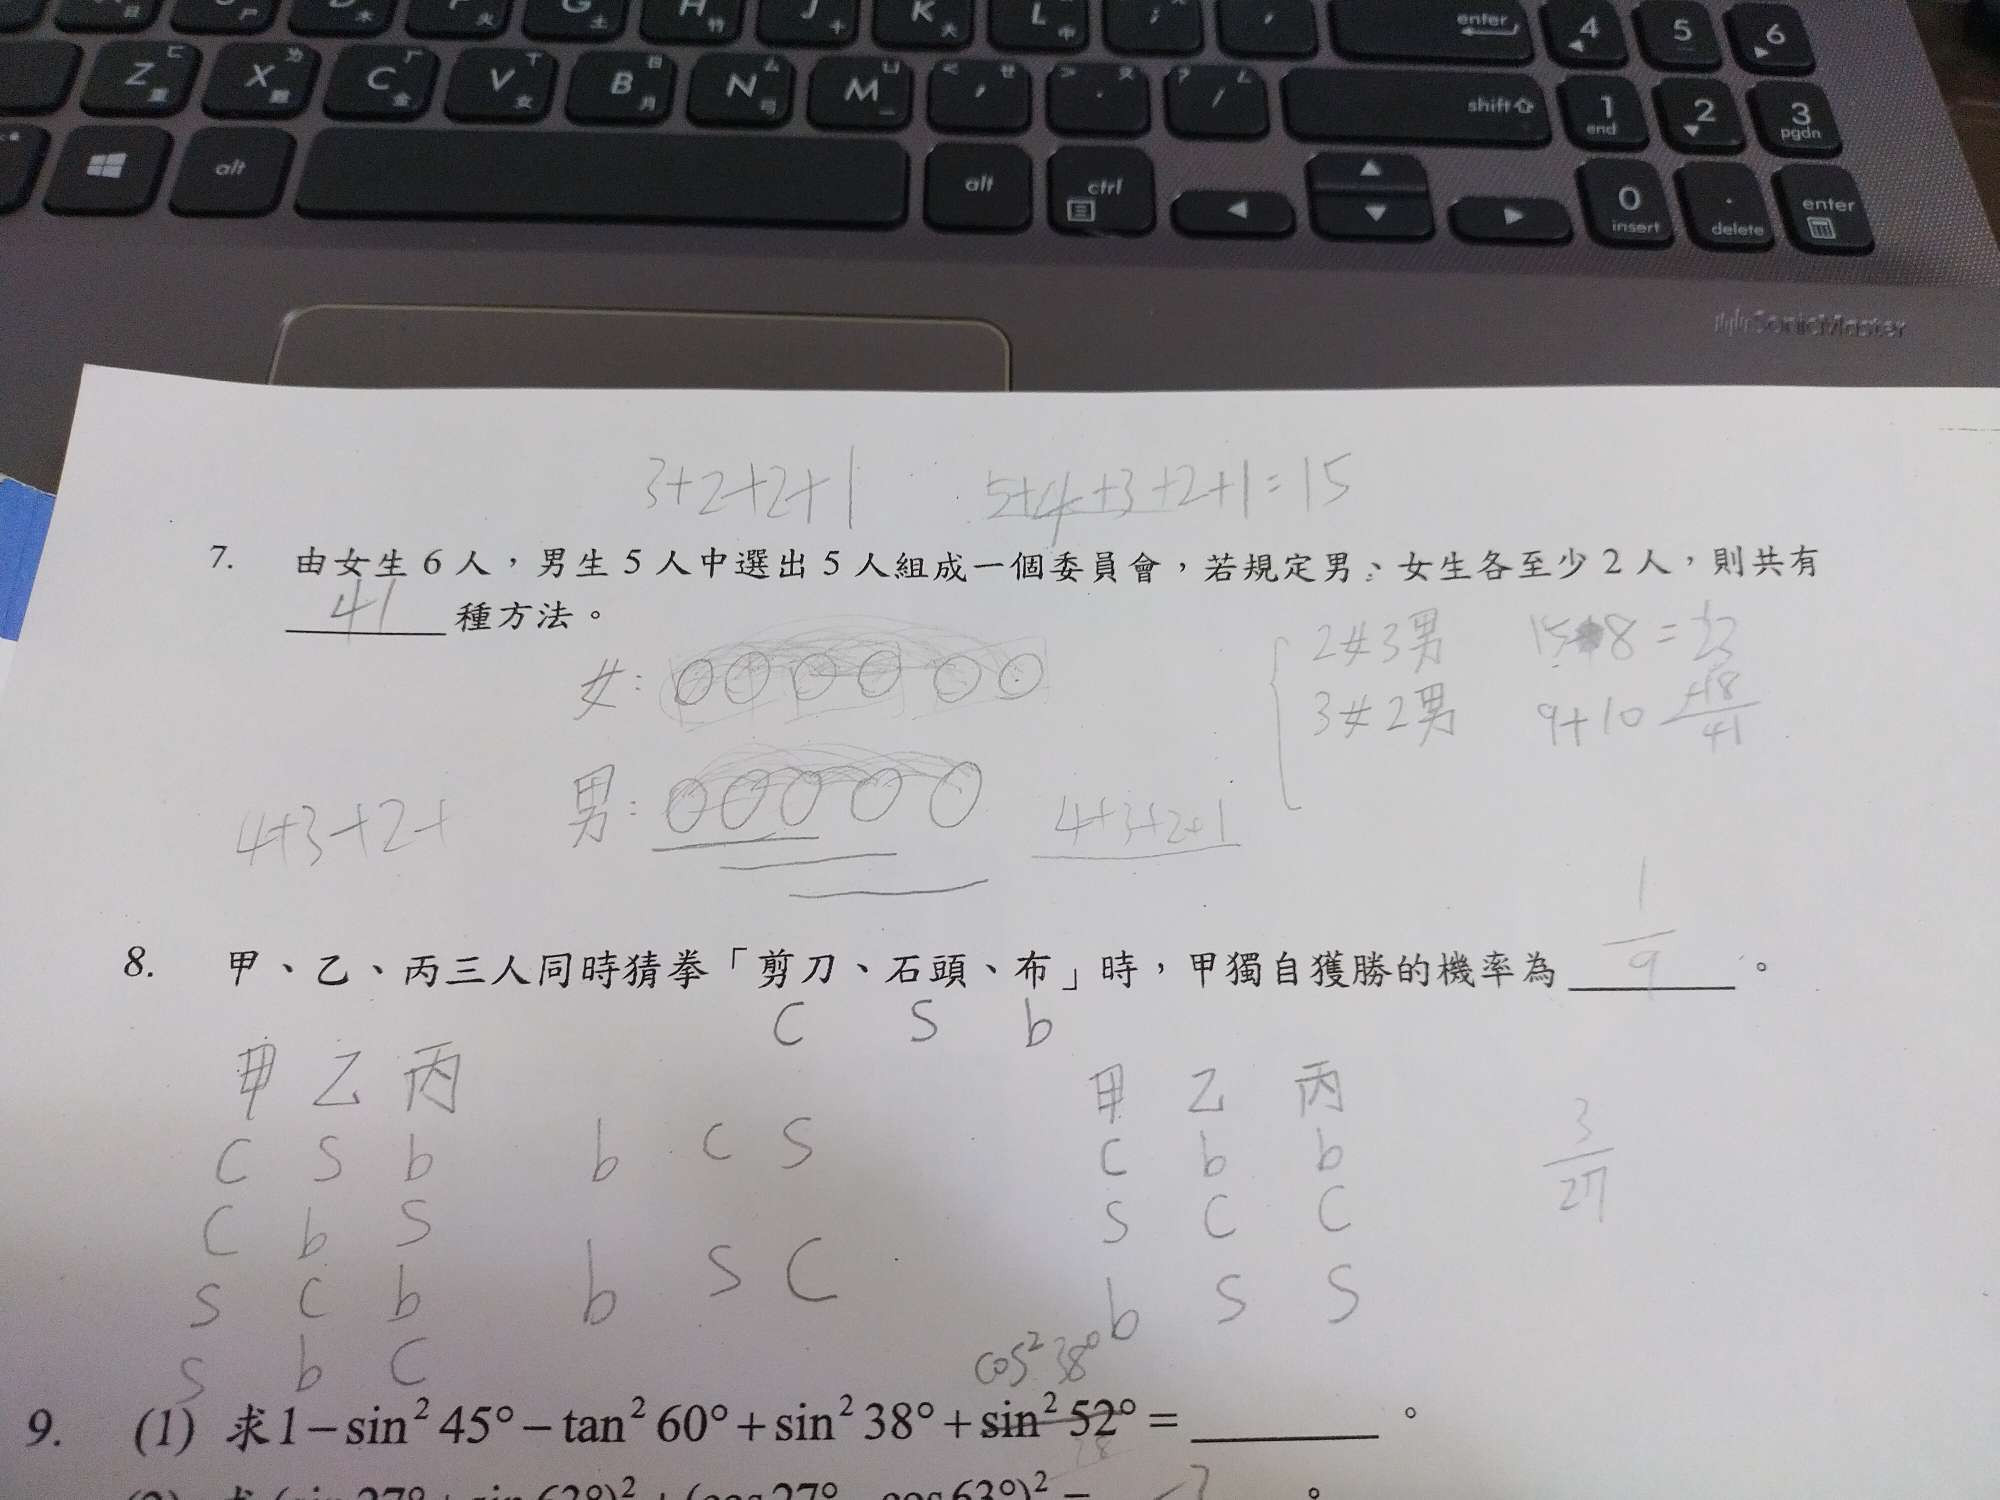 G ㄕ 土
H ㄘ 竹
J ㄨ 十
K ㄜ 大
L ㄠ 中
enter
4
5
6
Z ㄈ 重
X ㄌ 難
C ㄏ 金
V ㄒ 女
B ㄖ 月
N ㄙ 弓
M ㄩ 一
< ㄝ ,
> ㄡ .
? ㄥ /
shift
1 end
2
3 pgdn
alt
alt
ctrl
0 insert
. delete
enter
SonicMaster
3+2+2+1
5+4+3+2+1=15
7. 由女生 6 人，男生 5 人中選出 5 人組成一個委員會，若規定男、女生各至少 2 人，則共有
41 種方法。
女:
2女3男 15+8=23
3女2男 9+10 +18
41
男:
4+3+2+
4+3+2+1
8. 甲、乙、丙三人同時猜拳「剪刀、石頭、布」時，甲獨自獲勝的機率為 1/9 。
C S b
甲 乙 丙
甲 乙 丙
C S b
b C S
C b b
3/27
C b S
S C C
S C b
b S C
b S S
S b C
cos² 38°
9. (1) 求1−sin² 45°−tan² 60°+sin² 38°+sin² 52°=______。